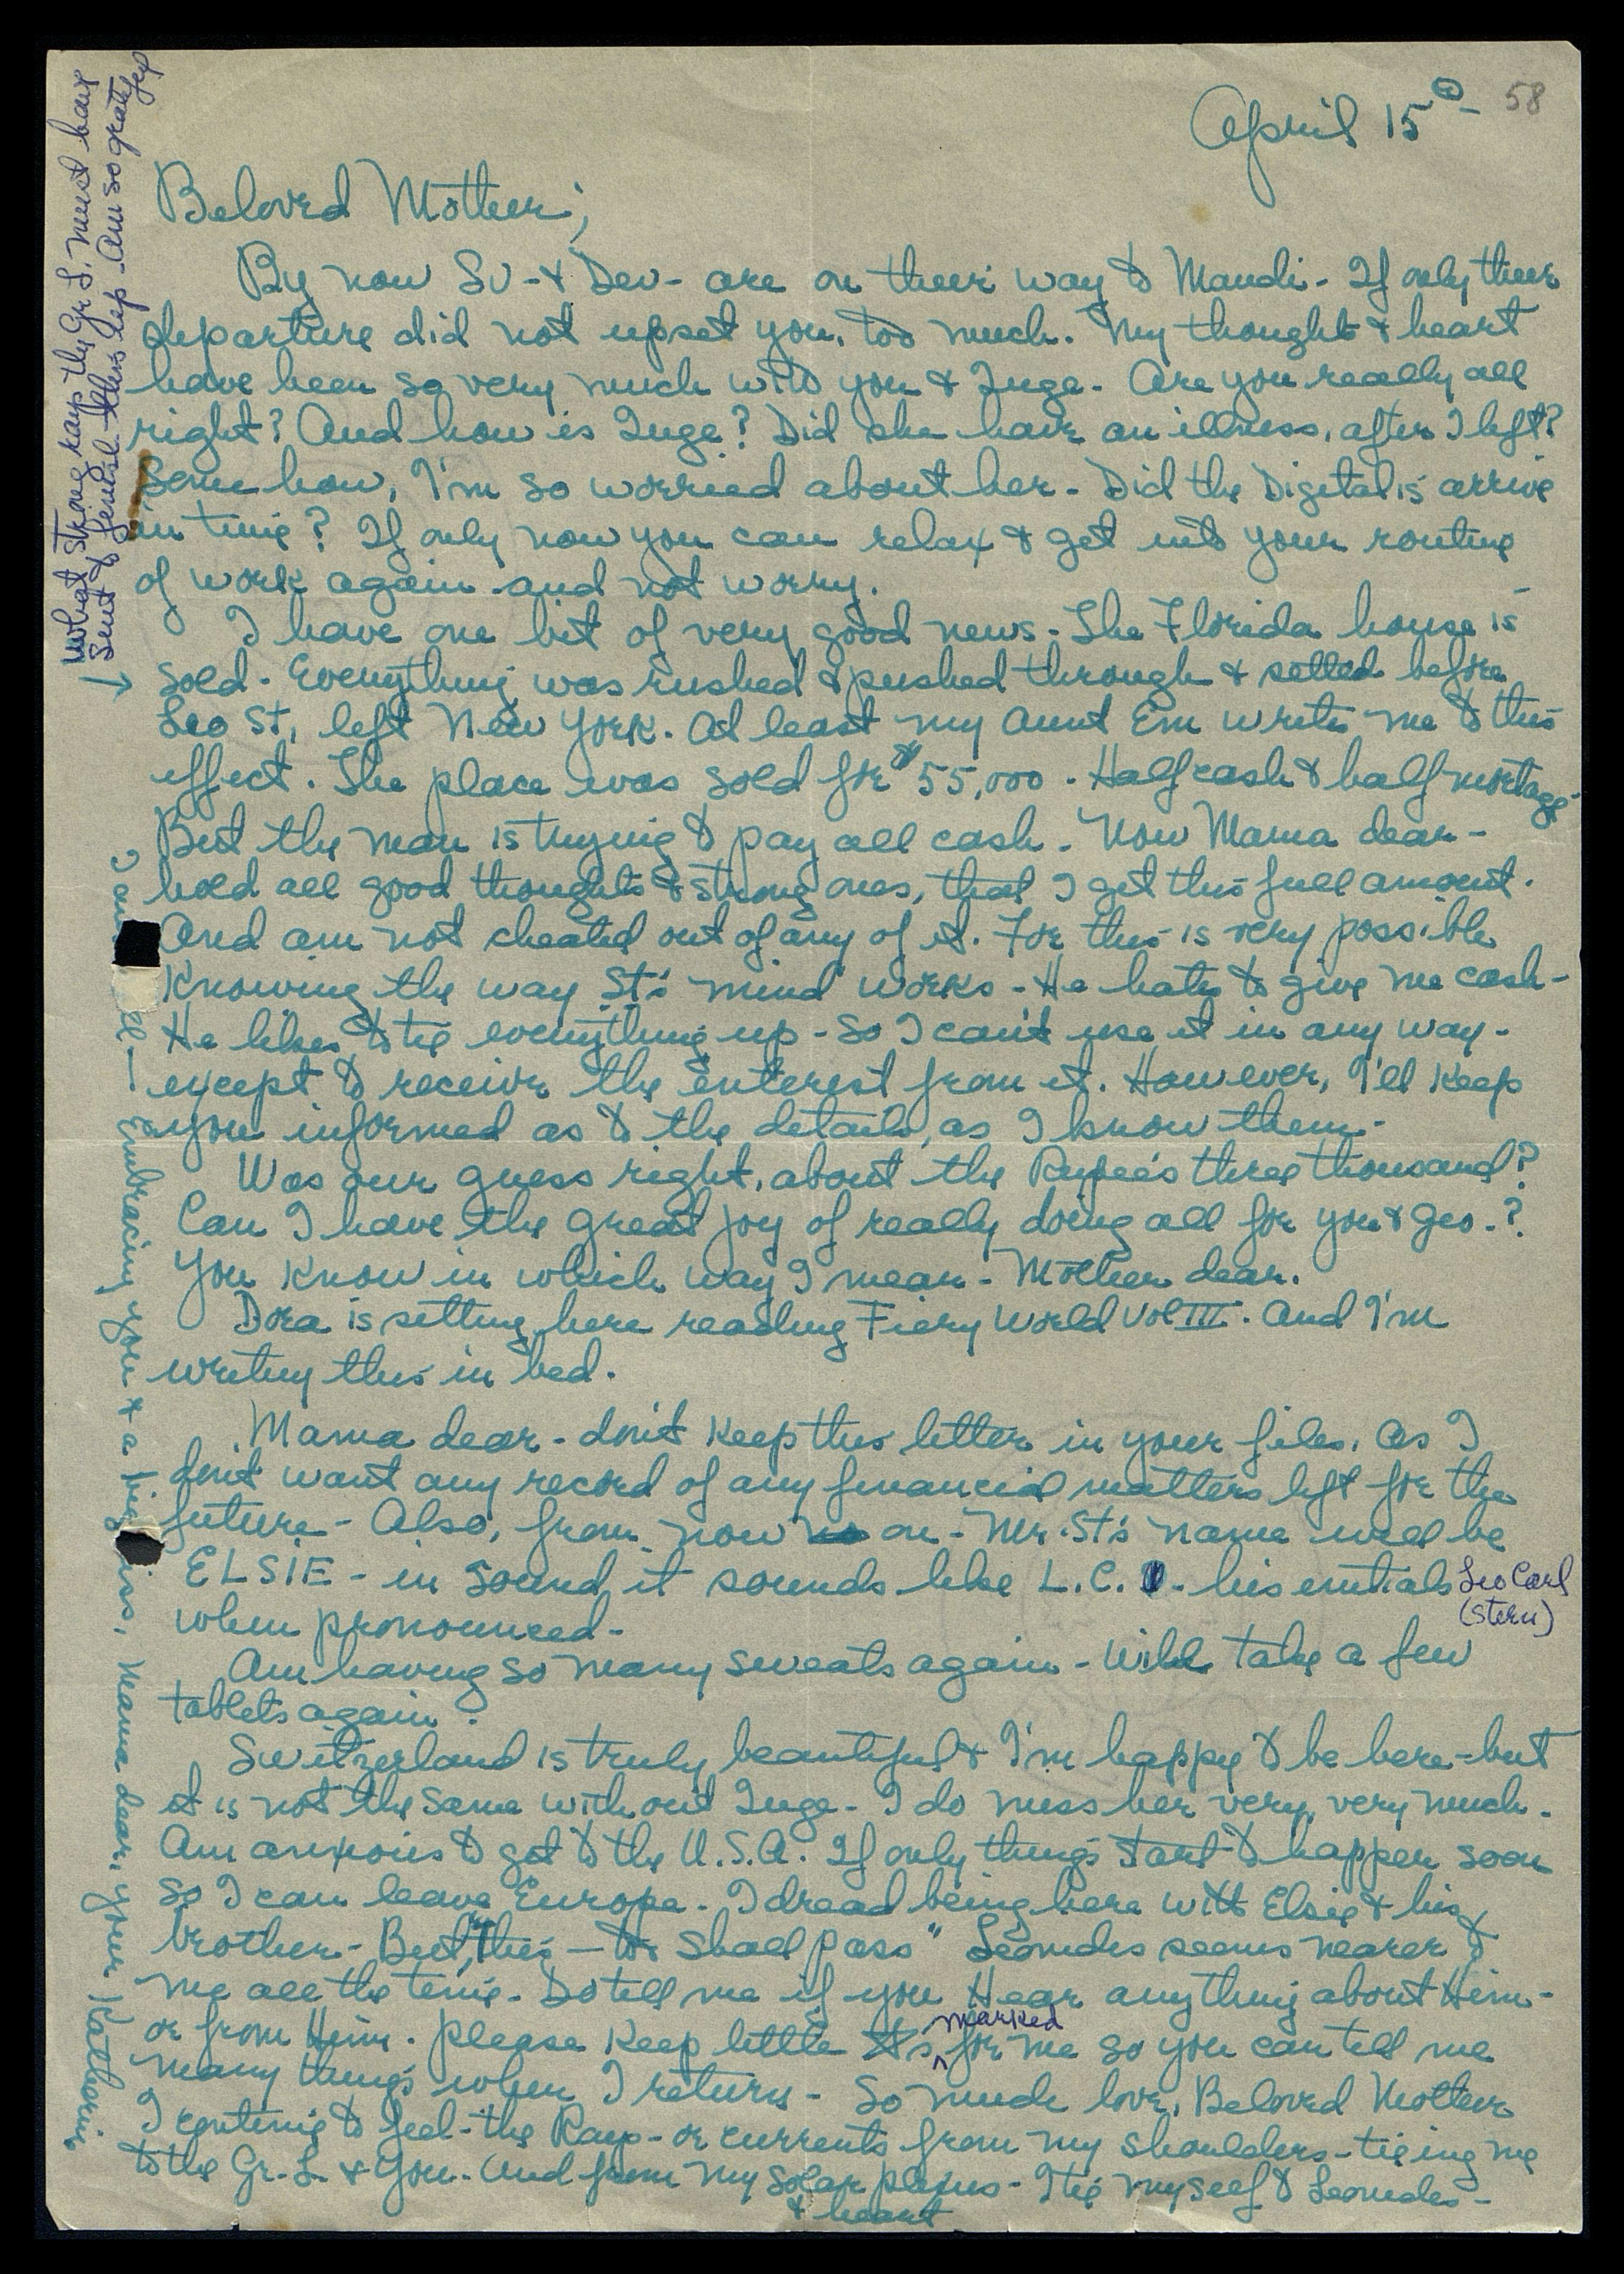 58
April 15th -
Beloved Mother;
By now Sv- & Dev- are on their way to Mandi - If only their
departure did not upset you, too much. My thoughts & heart
have been so very much with you & Inge - Are you really all
right? And how is Inge? Did she have an illness, after I left?
Somehow, I'm so worried about her - Did the Digitalis arrive
in time? If only now you can relax & get into your routine
of work again and not worry.
I have one bit of very good news - The Florida house is
sold - Everything was rushed & pushed through & settled before
Leo St, left New York. At least my Aunt Em writes me to this
effect. The place was sold for $55,000 - Half cash & half mortage -
But the man is trying to pay all cash - Now Mama dear -
hold all good thoughts & strong ones, that I get this full amount.
And am not cheated out of any of it. For this is very possible
Knowing the way St's mind works - He hates to give me cash -
He likes to tie everything up - so I can't use it in any way -
except to receive the enterest from it. However, I'll keep
you informed as to the details, as I know them -
Was our guess right, about the Rupee's three thousand?
Can I have the great joy of really doing all for you & Geo-?
You know in which way I mean - Mother dear.
Dora is setting here reading Fiery World Vol III. And I'm
writing this in bed.
Mama dear - don't keep this letter in your files. As I
don't want any record of any financial matters left for the
future - Also, from now on - Mr. St's name will be
ELSIE - in sound, it sounds like L.C. - his enitials Leo Carl
(Stern)
when pronounced -
Am having so many sweats again - Will take a few
tablets again.
Switzerland is truly beautiful & I'm happy to be here - but
it is not the same without Inge - I do miss her very, very much -
Am anxious to get to the U.S.A. If only things start to happen soon
so I can leave Europe - I dread being here with Elsie & his
brother - But, "this - shall pass" Leonides seems nearer to
me all the time - Do tell me if you Hear anything about Him -
or from Him. Please keep little marked for me so you can tell me
many things when I return - So much love, Beloved Mother
I continue to feel - the Rays - or currents from my shoulders - tieing me
to the Gr. L. & You - And from my solar plexus - I tie myself to Leonides -
& heart
What strong rays the Gr L. must have
sent to fenish this help - Am so grateful
→
Embracing you & a big kiss, Mama dear, your Katherin